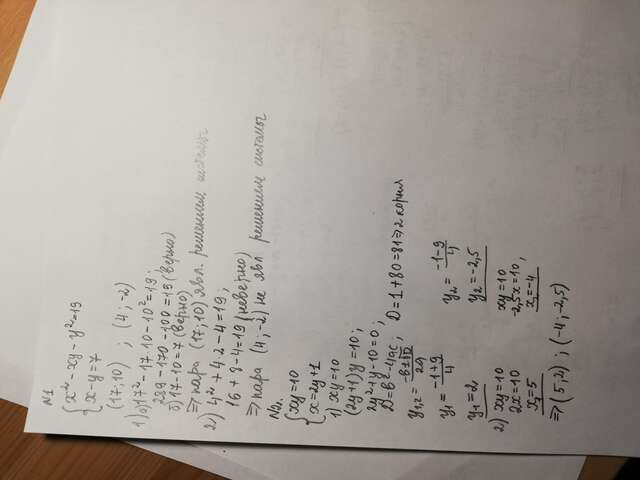 N1
{x²-xy-y²=19
x-y=7
(17;10) ; (4;-2)
1) а) 17²-17·10-10²=19;
289-170-100=19 (верно)
б) 17-10=7 (верно)
⇒ пара (17;10) явл. решением системы
2) 4²+4·2-4=19;
16+8-4=19 (неверно)
⇒ пара (4;-2) не явл решением системы
N2.
{xy=10
x=2y+1
1) xy=10
(2y+1)y=10;
2y²+y-10=0;
D=b²-4ac; D=1+80=81⇒2 корня
y₁,₂=(-b±√D)/2a
y₁=(-1+9)/4 y₂=(-1-9)/4
y₁=2, y₂=-2,5
2) xy=10 xy=10
2x=10 -2,5x=10,
x₁=5 x=-4
⇒(5;2) ; (-4;-2,5)